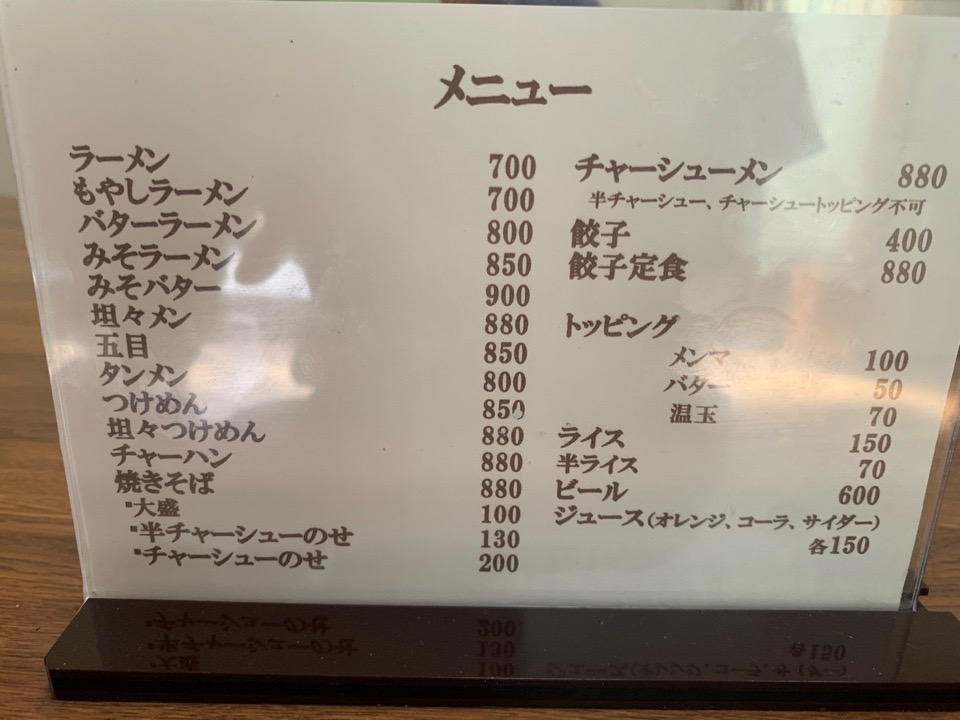 メニュー
ラーメン 700
もやしラーメン 700
バターラーメン 800
みそラーメン 850
みそバター 900
坦々メン 880
五目 850
タンメン 800
つけめん 850
坦々つけめん 880
チャーハン 880
焼きそば 880
▪大盛 100
▪半チャーシューのせ 130
▪チャーシューのせ 200
チャーシューメン 880
半チャーシュー、チャーシュートッピング不可
餃子 400
餃子定食 880
トッピング
メンマ 100
バター 50
温玉 70
ライス 150
半ライス 70
ビール 600
ジュース(オレンジ、コーラ、サイダー)
各150